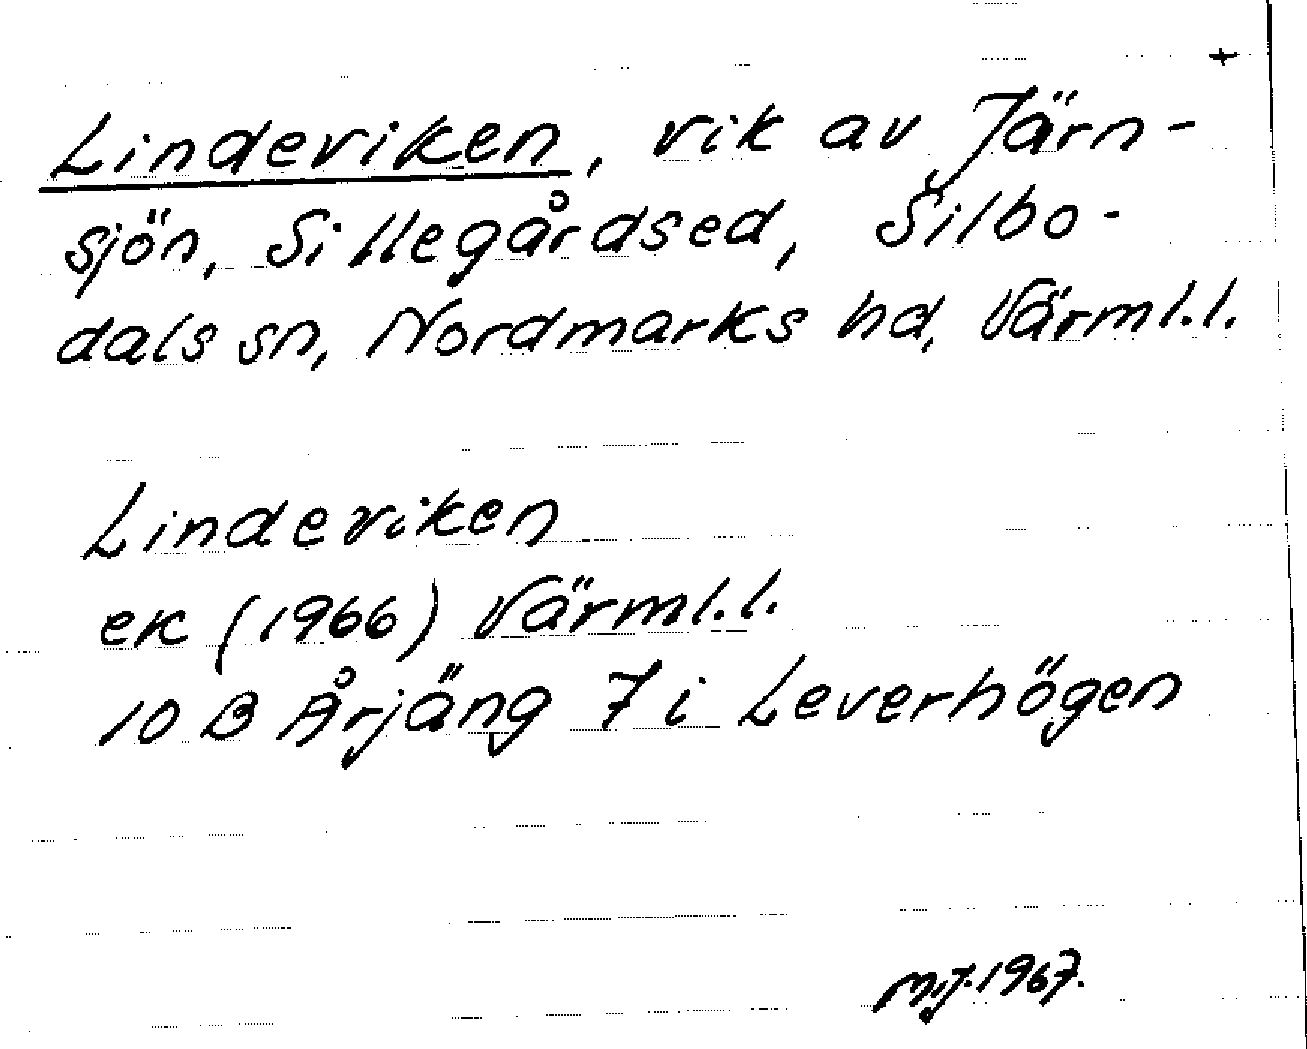 +
Linderviken, vik av Järn-
sjön, Sillegårdsed, Silbo-
dals sn, Nordmarks hd, Värml.l.
Linderviken
ek (1966) Värml.l.
10 B Årjäng 7 i Leverhögen
M.J. 1967.